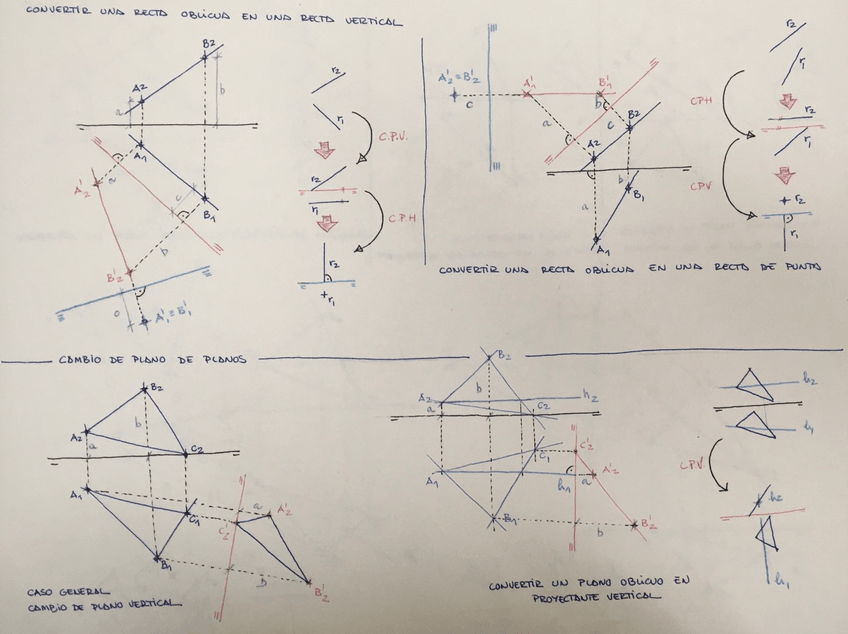 CONVERTIR UNA RECTA OBLICUA EN UNA RECTA VERTICAL
B2
A2
a
b
A1
A'2
a
c
B1
b
B'2
c
A'1≡B'1
r2
r1
C.P.V.
r2
r1
C.P.H
r2
r1
A'2≡B'2
c
A'1
B'1
b
a
c
B2
A2
b
B1
a
A1
r2
r1
CPH
r2
r1
CPV
r2
r1
CONVERTIR UNA RECTA OBLICUA EN UNA RECTA DE PUNTA
CAMBIO DE PLANO DE PLANOS
B2
A2
b
a
C2
A1
C1
a
A'2
C'2
B1
b
B'2
CASO GENERAL
CAMBIO DE PLANO VERTICAL
B2
b
A2
h2
a
C2
C1
C'2
A1
h1
a
A'2
B1
b
B'2
h2
h1
C.P.V.
h2
h1
CONVERTIR UN PLANO OBLICUO EN
PROYECTANTE VERTICAL